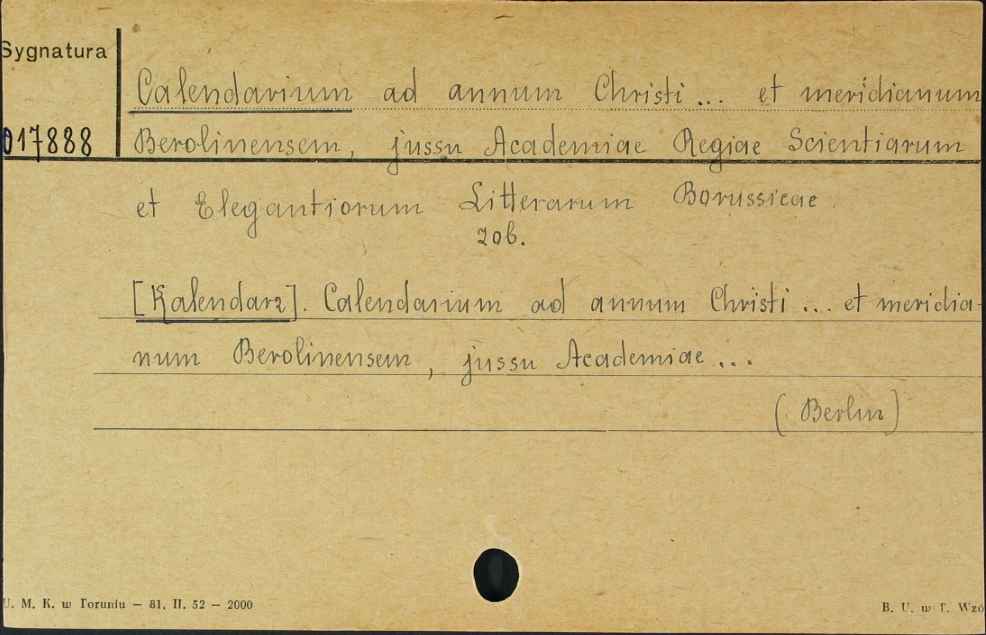 Sygnatura
Calendarium ad annum Christi ... et meridianum
017888 Berolinensem, jussu Academiae Regiae Scientiarum
et Elegantiorum Litterarum Borussicae
zob.
[Kalendarz]. Calendarium ad annum Christi ... et meridia-
num Berolinensem, jussu Academiae ...
(Berlin)
U. M. K. w Toruniu — 81. II. 52 — 2000
B. U. w T. Wzó